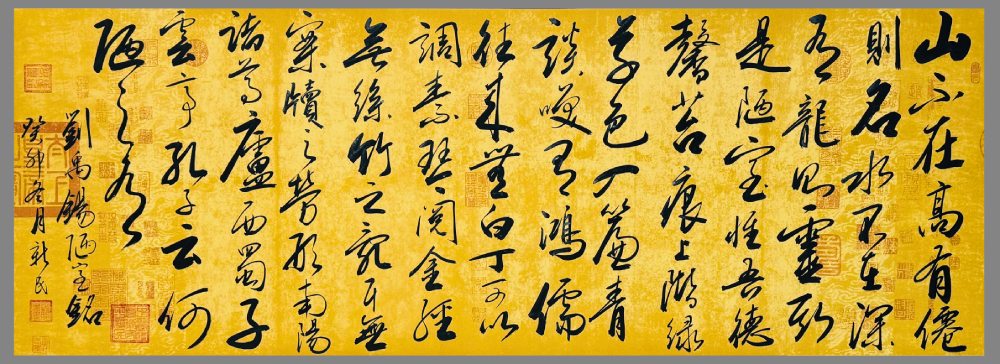 山不在高有僊
則名水不在深
有龍則靈斯
是陋室惟吾德
馨苔痕上階緑
草色入簾青
談笑有鴻儒
往来無白丁可以
調素琴閲金經
無絲竹之亂耳無
案牘之勞形南陽
諸葛廬西蜀子
雲亭孔子云何
陋之有
劉禹錫陋室銘
癸卯冬月新民